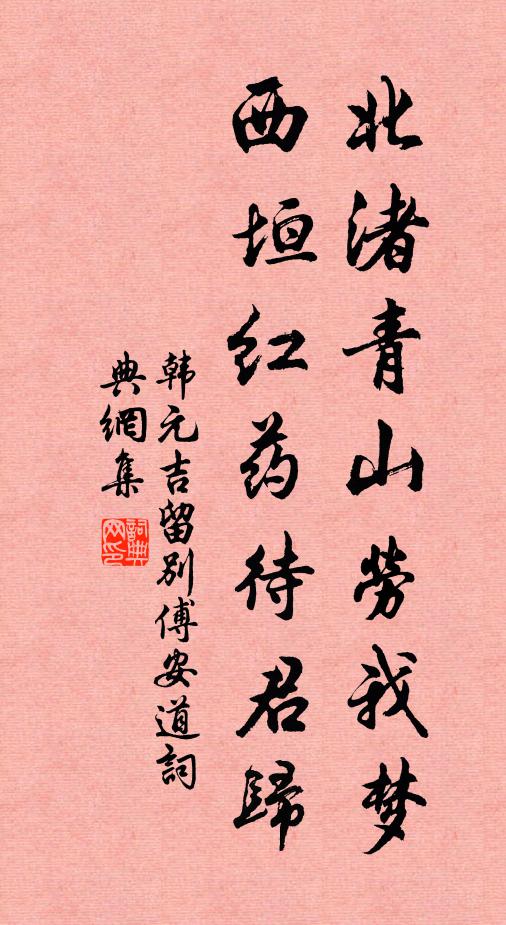 北渚青山劳我梦
西垣红药待君歸
韩元吉留别傅安道詞
典網集
詞典网印